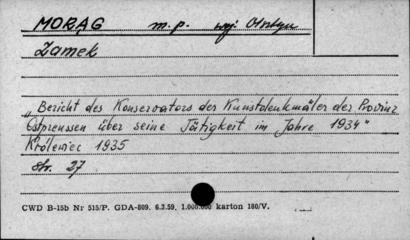 MORĄG m.p. woj. Olsztyn
Zamek
„Bericht des Konservators der Kunstdenkmäler der Provinz
Ostpreussen über seine Tätigkeit im Jahre 1934"
Królewiec 1935
str. 27
CWD B-15b Nr 515/P. GDA-809. 6.2.59. 1.000.000 karton 180/V.